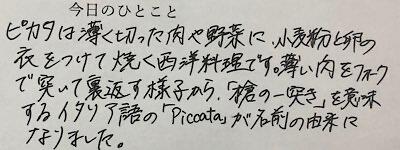 今日のひとこと
ピカタは薄く切った肉や野菜に、小麦粉と卵の
衣をつけて焼く西洋料理です。薄い肉をフォーク
で突いて裏返す様子から、「槍の一突き」を意味
するイタリア語の「Piccata」が名前の由来に
なりました。